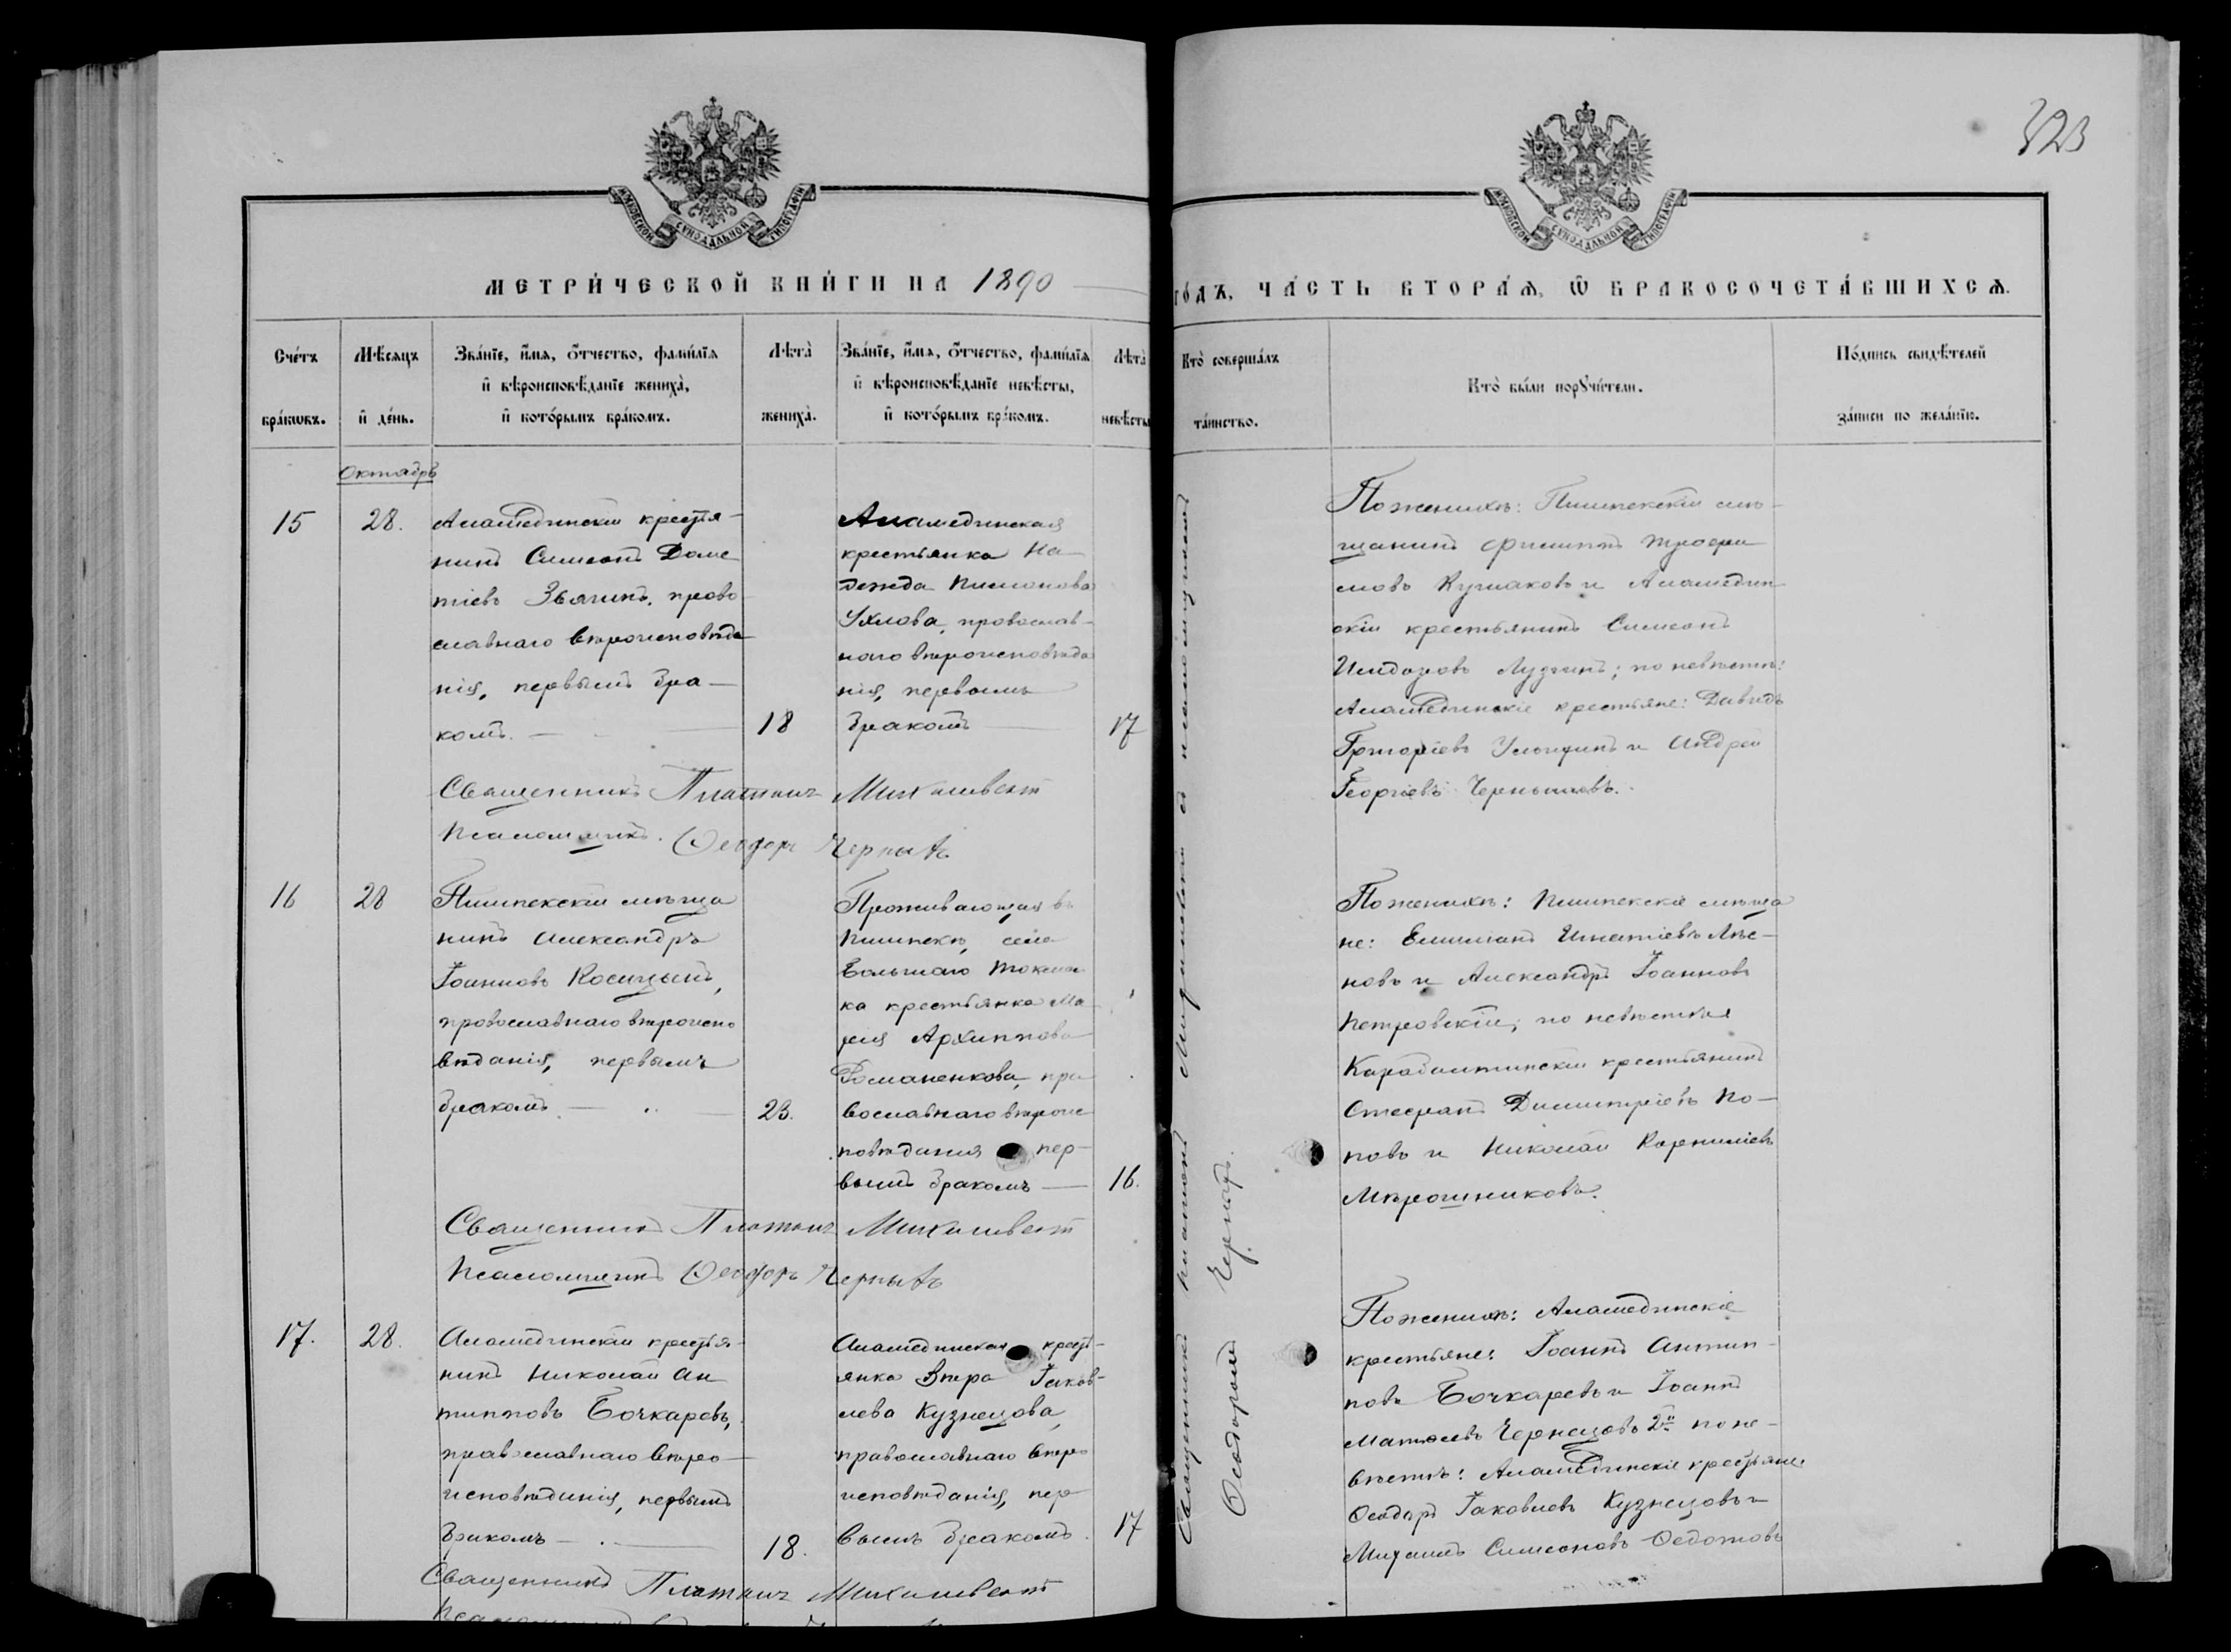 323
МОСКОВСКОЙ СУНОДАЛЬНОЙ ТИПОГРАФІИ
МОСКОВСКОЙ СУНОДАЛЬНОЙ ТИПОГРАФІИ
МЕТРИ́ЧЕСКОЙ КНИ́ГИ НА 1890
ГО́ДЪ, ЧА́СТЬ ВТОРА́Ѧ, Ѿ БРАКОСОЧЕТА́ВШИХСѦ.
Сче́тъ
бра́кѡвъ.
Мѣ́сѧцъ
и҆ де́нь.
Зва́нїе, и҆́мѧ, ѻ҆́тчество, фамі́лїѧ
и҆ вѣроисповѣ́данїе жениха̀,
и҆ кото́рымъ бра́комъ.
Лѣта̀
жениха̀.
Зва́нїе, и҆́мѧ, ѻ҆́тчество, фамі́лїѧ
и҆ вѣроисповѣ́данїе невѣ́сты,
и҆ кото́рымъ бра́комъ.
Лѣта̀
невѣ́сты
Кто̀ соверша́лъ
та́инство.
Кто̀ бы́ли порꙋчи́тели.
По́дпись свидѣ́телей
за́писи по жела́нїю.
Октябрь
15
28.
Аламединскій крестья-
нинъ Симеонъ Доме
тіевъ Звягинъ, право
славнаго вѣроисповѣда
нія, первымъ бра-
комъ.
18
Аламединская
крестьянка На
дежда Пименова
Ухлова, православ-
наго вѣроисповѣда
нія, первымъ
бракомъ
17
Поженихѣ: Пишпекскій мѣ-
щанинъ Филиппъ Трофи
мовъ Кушаковъ и Аламедин
скій крестьянинъ Симеонъ
Исидоровъ Лузгинъ; по невѣстѣ:
Аламединскіе крестьяне: Давидъ
Григоріевъ и Андрей
Георгіевъ Чернышовъ.
Священникъ Платонъ
Псаломщикъ. Ѳеодоръ Черныхъ
16
28
Пишпекскій мѣща
нинъ Александръ
Іоанновъ Косицынъ,
православнаго вѣроиспо
вѣданія, первымъ
бракомъ.
23.
Проживающая въ
Пишпекѣ, села
Большаго Токма
ка крестьянка Ма
рія Архиппова
Романенкова, пра
вославнаго вѣроис
повѣданія пер-
вымъ бракомъ
16.
Поженихѣ: Пишпекскіе мѣща
не: Емиліанъ Игнатіевъ
новъ и Александръ Іоанновъ
Петровскій; по невѣстѣ
Карабалтинскій крестьянинъ
Стефанъ Димитріевъ По-
повъ и Николай Корниліевъ
Мирошниковъ.
Священникъ Платонъ
Псаломщикъ Ѳеодоръ Черныхъ
17.
28.
Аламединскій крестья-
нинъ Николай Ан
типповъ Бочкаревъ,
православнаго вѣро-
исповѣданія, первымъ
бракомъ
18.
Аламединская кресть-
янка Вѣра Іаков-
лева Кузнецова,
православнаго вѣро
исповѣданія, пер
вымъ бракомъ.
17
Поженихѣ: Аламединскіе
крестьяне: Іоаннъ Антип-
повъ Бочкаревъ и Іоаннъ
Матѳеевъ Чернецовъ 2й по не-
вѣстѣ: Аламединскіе крестьяне
Ѳеодоръ Іаковлевъ Кузнецовъ и
Михаилъ Симеоновъ Ѳедотовъ
Священникъ Платонъ
Священникъ Платонъ съ псаломщикомъ
Ѳеодоромъ Черныхъ.